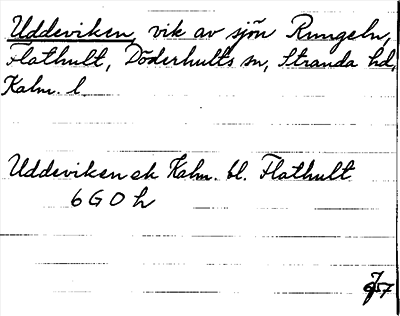 Uddeviken, vik av sjön Rungeln,
Flathult, Döderhults sn, Stranda hd,
Kalm. l.
Uddeviken ek Kalm. bl. Flathult
6 G O h